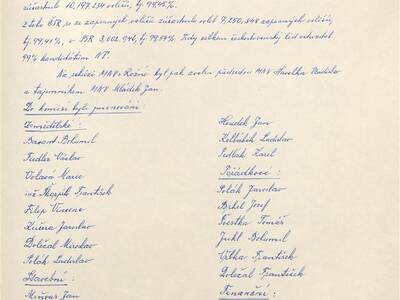 zúčastnilo 10,197.254 voličů, tj. 99,45%.
Z toho ČSR, se ze zapsaných voličů zúčastnilo voleb 7,250,848 zapsaných voličů,
tj. 99,41%, v SSR 3,002.946, tj. 99,54%. Tedy celkem československý lid odevzdal
99% kandidátům NF.
Na schůzi MNV v Rožné byl pak zvolen předsedou MNV Havelka Vladislav
a tajemníkem MNV Mládek Jan.
Do komisí byli jmenováni
Zemědělské :
Basant Bohumil
Fiedler Václav
Volavá Marie
ing. František
Filip Vincenc
Kučera Jaroslav
Doležal Miroslav
Polák Ladislav
Stavební :
Jan
Houdek Jan
Ladislav
Sedlák Karel
Pořádkové :
Polák Jaroslav
Josef
Tomáš
Juhl Bohumil
Vrbka František
Doležal František
Finanční :